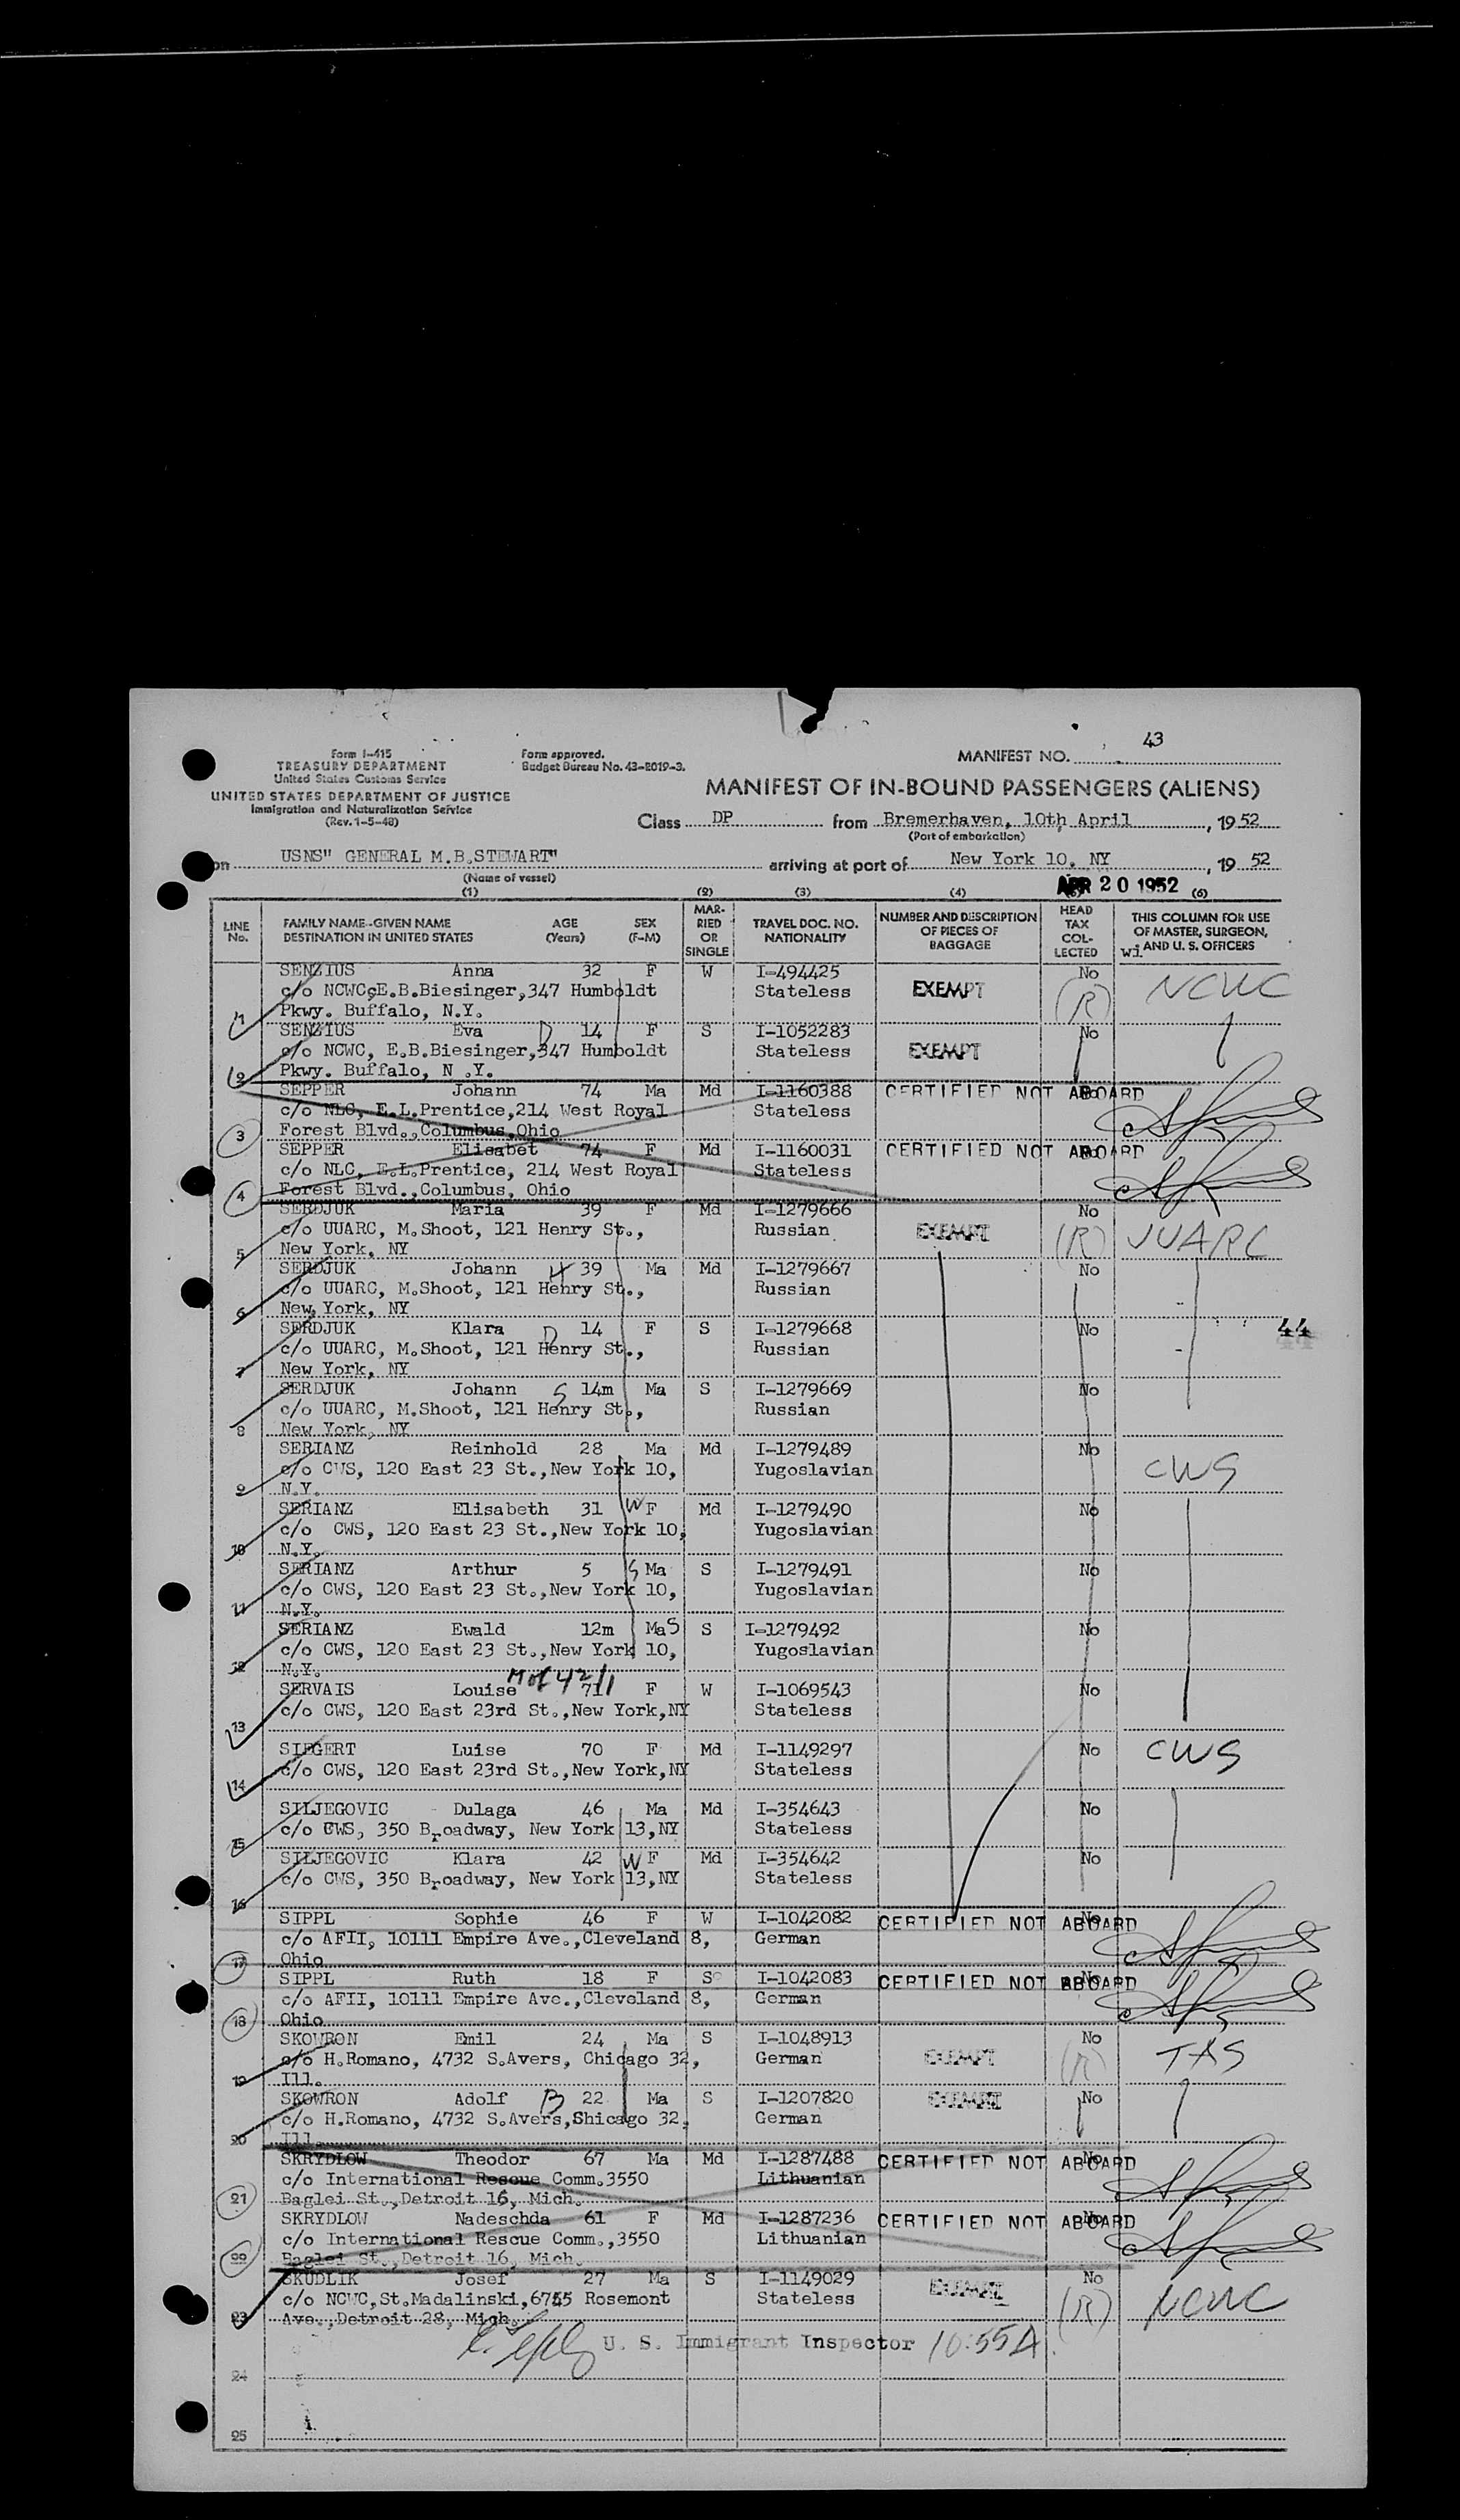 43
Form I-415
TREASURY DEPARTMENT
United States Customs Service
UNITED STATES DEPARTMENT OF JUSTICE
Immigration and Naturalization Service
(Rev. 1-5-48)
Form approved.
Budget Bureau No. 43-R019-3.
MANIFEST NO.
MANIFEST OF IN-BOUND PASSENGERS (ALIENS)
Class DP from Bremerhaven, 10th April , 19 52
(Port of embarkation)
on USNS" GENERAL M.B.STEWART" arriving at port of New York 10, NY , 19 52
(Name of vessel)
APR 20 1952
(1) (2) (3) (4) (6)
LINE No. FAMILY NAME-GIVEN NAME DESTINATION IN UNITED STATES AGE (Years) SEX (F-M) MARRIED OR SINGLE TRAVEL DOC. NO. NATIONALITY NUMBER AND DESCRIPTION OF PIECES OF BAGGAGE HEAD TAX COLLECTED THIS COLUMN FOR USE OF MASTER, SURGEON, AND U. S. OFFICERS
SENZIUS Anna 32 F W I-494425 No
c/o NCWC,E.B.Biesinger,347 Humboldt Stateless EXEMPT (R) NCWC
1 Pkwy. Buffalo, N.Y.
SENZIUS Eva D 14 F S I-1052283 No
c/o NCWC, E.B.Biesinger,347 Humboldt Stateless EXEMPT
2 Pkwy. Buffalo, N .Y.
SEPPER Johann 74 Ma Md I-1160388 CERTIFIED NOT ABOARD
c/o NLC, E.L.Prentice,214 West Royal Stateless
3 Forest Blvd.,Columbus,Ohio
SEPPER Elisabet 74 F Md I-1160031 CERTIFIED NOT ABOARD
c/o NLC, E.L.Prentice, 214 West Royal Stateless
4 Forest Blvd.,Columbus, Ohio
SERDJUK Maria 39 F Md I-1279666 No
c/o UUARC, M.Shoot, 121 Henry St., Russian EXEMPT (R) UUARC
5 New York, NY
SERDJUK Johann H 39 Ma Md I-1279667 No
c/o UUARC, M.Shoot, 121 Henry St., Russian
6 New York, NY
SERDJUK Klara D 14 F S I-1279668 No 44
c/o UUARC, M.Shoot, 121 Henry St., Russian
7 New York, NY
SERDJUK Johann S 14m Ma S I-1279669 No
c/o UUARC, M.Shoot, 121 Henry St., Russian
8 New York, NY
SERIANZ Reinhold 28 Ma Md I-1279489 No
c/o CWS, 120 East 23 St.,New York 10, Yugoslavian CWS
9 N.Y.
SERIANZ Elisabeth 31 W F Md I-1279490 No
c/o CWS, 120 East 23 St.,New York 10, Yugoslavian
10 N.Y.
SERIANZ Arthur 5 S Ma S I-1279491 No
c/o CWS, 120 East 23 St.,New York 10, Yugoslavian
11 N.Y.
SERIANZ Ewald 12m Ma S S I-1279492 No
c/o CWS, 120 East 23 St.,New York 10, Yugoslavian
12 N.Y.
M of 42/1
SERVAIS Louise 71 F W I-1069543 No
c/o CWS, 120 East 23rd St.,New York,NY Stateless
13
SIEGERT Luise 70 F Md I-1149297 No CWS
c/o CWS, 120 East 23rd St.,New York,NY Stateless
14
SILJEGOVIC Dulaga 46 Ma Md I-354643 No
c/o CWS, 350 Broadway, New York 13,NY Stateless
15
SILJEGOVIC Klara 42 W F Md I-354642 No
c/o CWS, 350 Broadway, New York 13,NY Stateless
16
SIPPL Sophie 46 F W I-1042082 CERTIFIED NOT ABOARD
c/o AFII, 10111 Empire Ave.,Cleveland 8, German
17 Ohio
SIPPL Ruth 18 F S I-1042083 CERTIFIED NOT ABOARD
c/o AFII, 10111 Empire Ave.,Cleveland 8, German
18 Ohio
SKOWRON Emil 24 Ma S I-1048913 No
c/o H.Romano, 4732 S.Avers, Chicago 32, German EXEMPT (R) TAS
19 Ill.
SKOWRON Adolf B 22 Ma S I-1207820 EXEMPT No
c/o H.Romano, 4732 S.Avers,Shicago 32, German
20 Ill.
SKRYDLOW Theodor 67 Ma Md I-1287488 CERTIFIED NOT ABOARD
c/o International Rescue Comm.3550 Lithuanian
21 Baglei St.,Detroit 16, Mich.
SKRYDLOW Nadeschda 61 F Md I-1287236 CERTIFIED NOT ABOARD
c/o International Rescue Comm.,3550 Lithuanian
22 Baglei St.,Detroit 16, Mich.
SKUDLIK Josef 27 Ma S I-1149029 EXEMPT No
c/o NCWC,St.Madalinski,6755 Rosemont Stateless (R) NCWC
23 Ave.,Detroit 28, Mich.
U. S. Immigrant Inspector 10:55A.
24
25